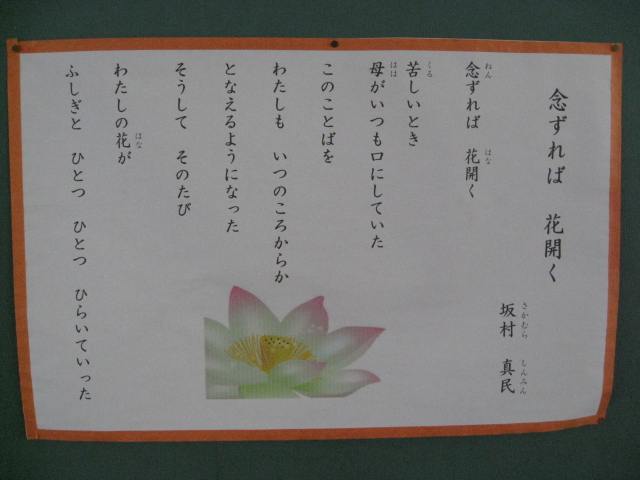 念ずれば　花開く
坂村　真民
さかむら　しんみん
念ずれば　花開く
ねん　はな
苦しいとき
くる
母がいつも口にしていた
はは
このことばを
わたしも　いつのころからか
となえるようになった
そうして　そのたび
わたしの花が
はな
ふしぎと　ひとつ　ひとつ　ひらいていった